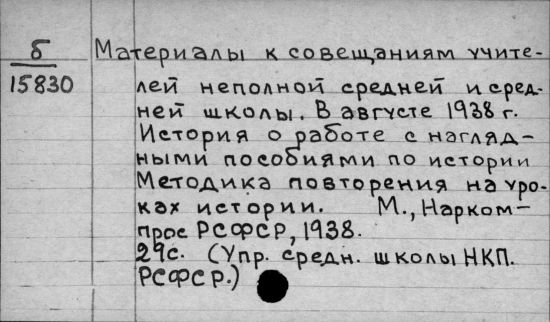 б Материалы к совещаниям учите-
15830 лей неполной средней и сред-
ней школы. В августе 1938 г.
История о работе с нагляд-
ными пособиями по истории
Методика повторения на уро-
ках истории. М., Нарком-
прос РСФСР, 1938.
29с. (Упр. средн. школы НКП.
РСФСР.)